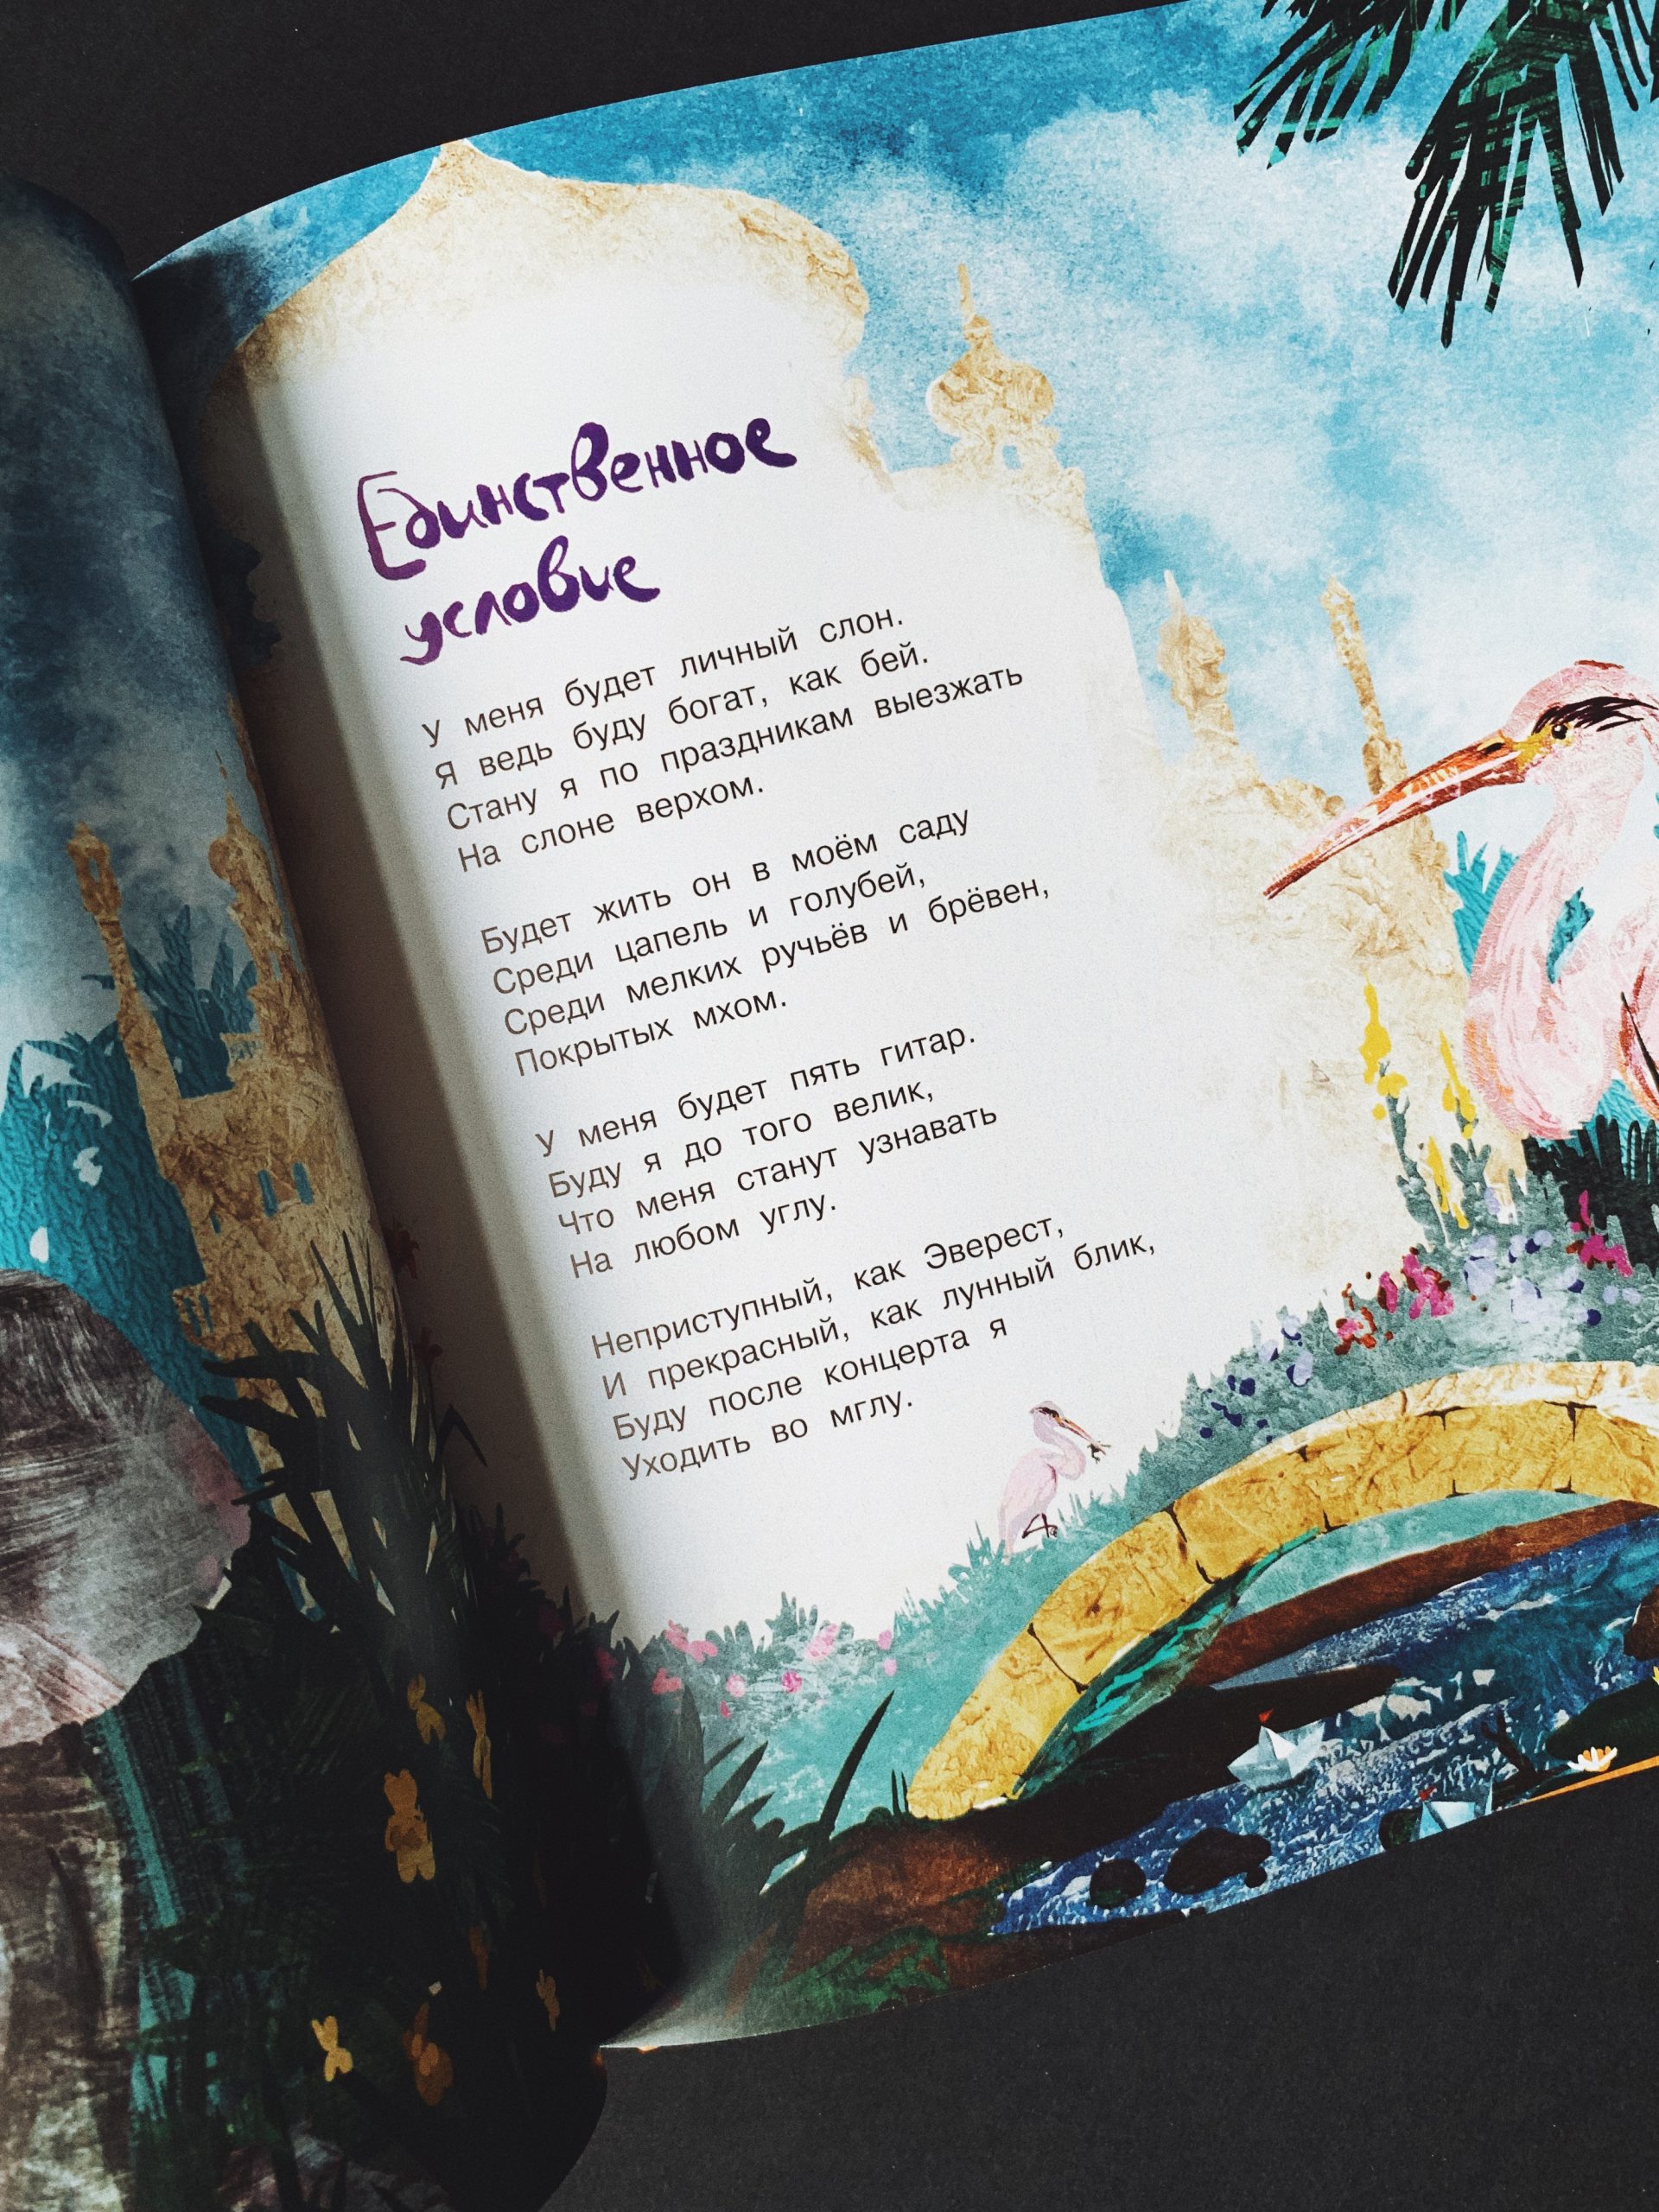 Единственное
условие
У меня будет личный слон.
Я ведь буду богат, как бей.
Стану я по праздникам выезжать
На слоне верхом.
Будет жить он в моём саду
Среди цапель и голубей,
Среди мелких ручьёв и брёвен,
Покрытых мхом.
У меня будет пять гитар.
Буду я до того велик,
Что меня станут узнавать
На любом углу.
Неприступный, как Эверест,
И прекрасный, как лунный блик,
Буду после концерта я
Уходить во мглу.